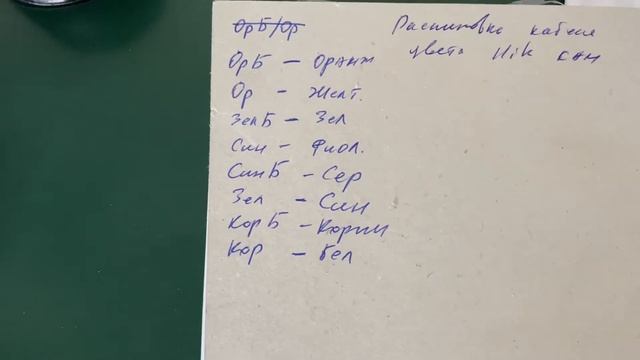 ОрБ/Ор
Распиновка кабеля
цвета Hik
ОрБ – Оранж
Ор – Желт.
ЗелБ – Зел
Син – Фиол.
СинБ – Сер
Зел – Син
КорБ – Коричн
Кор – Бел